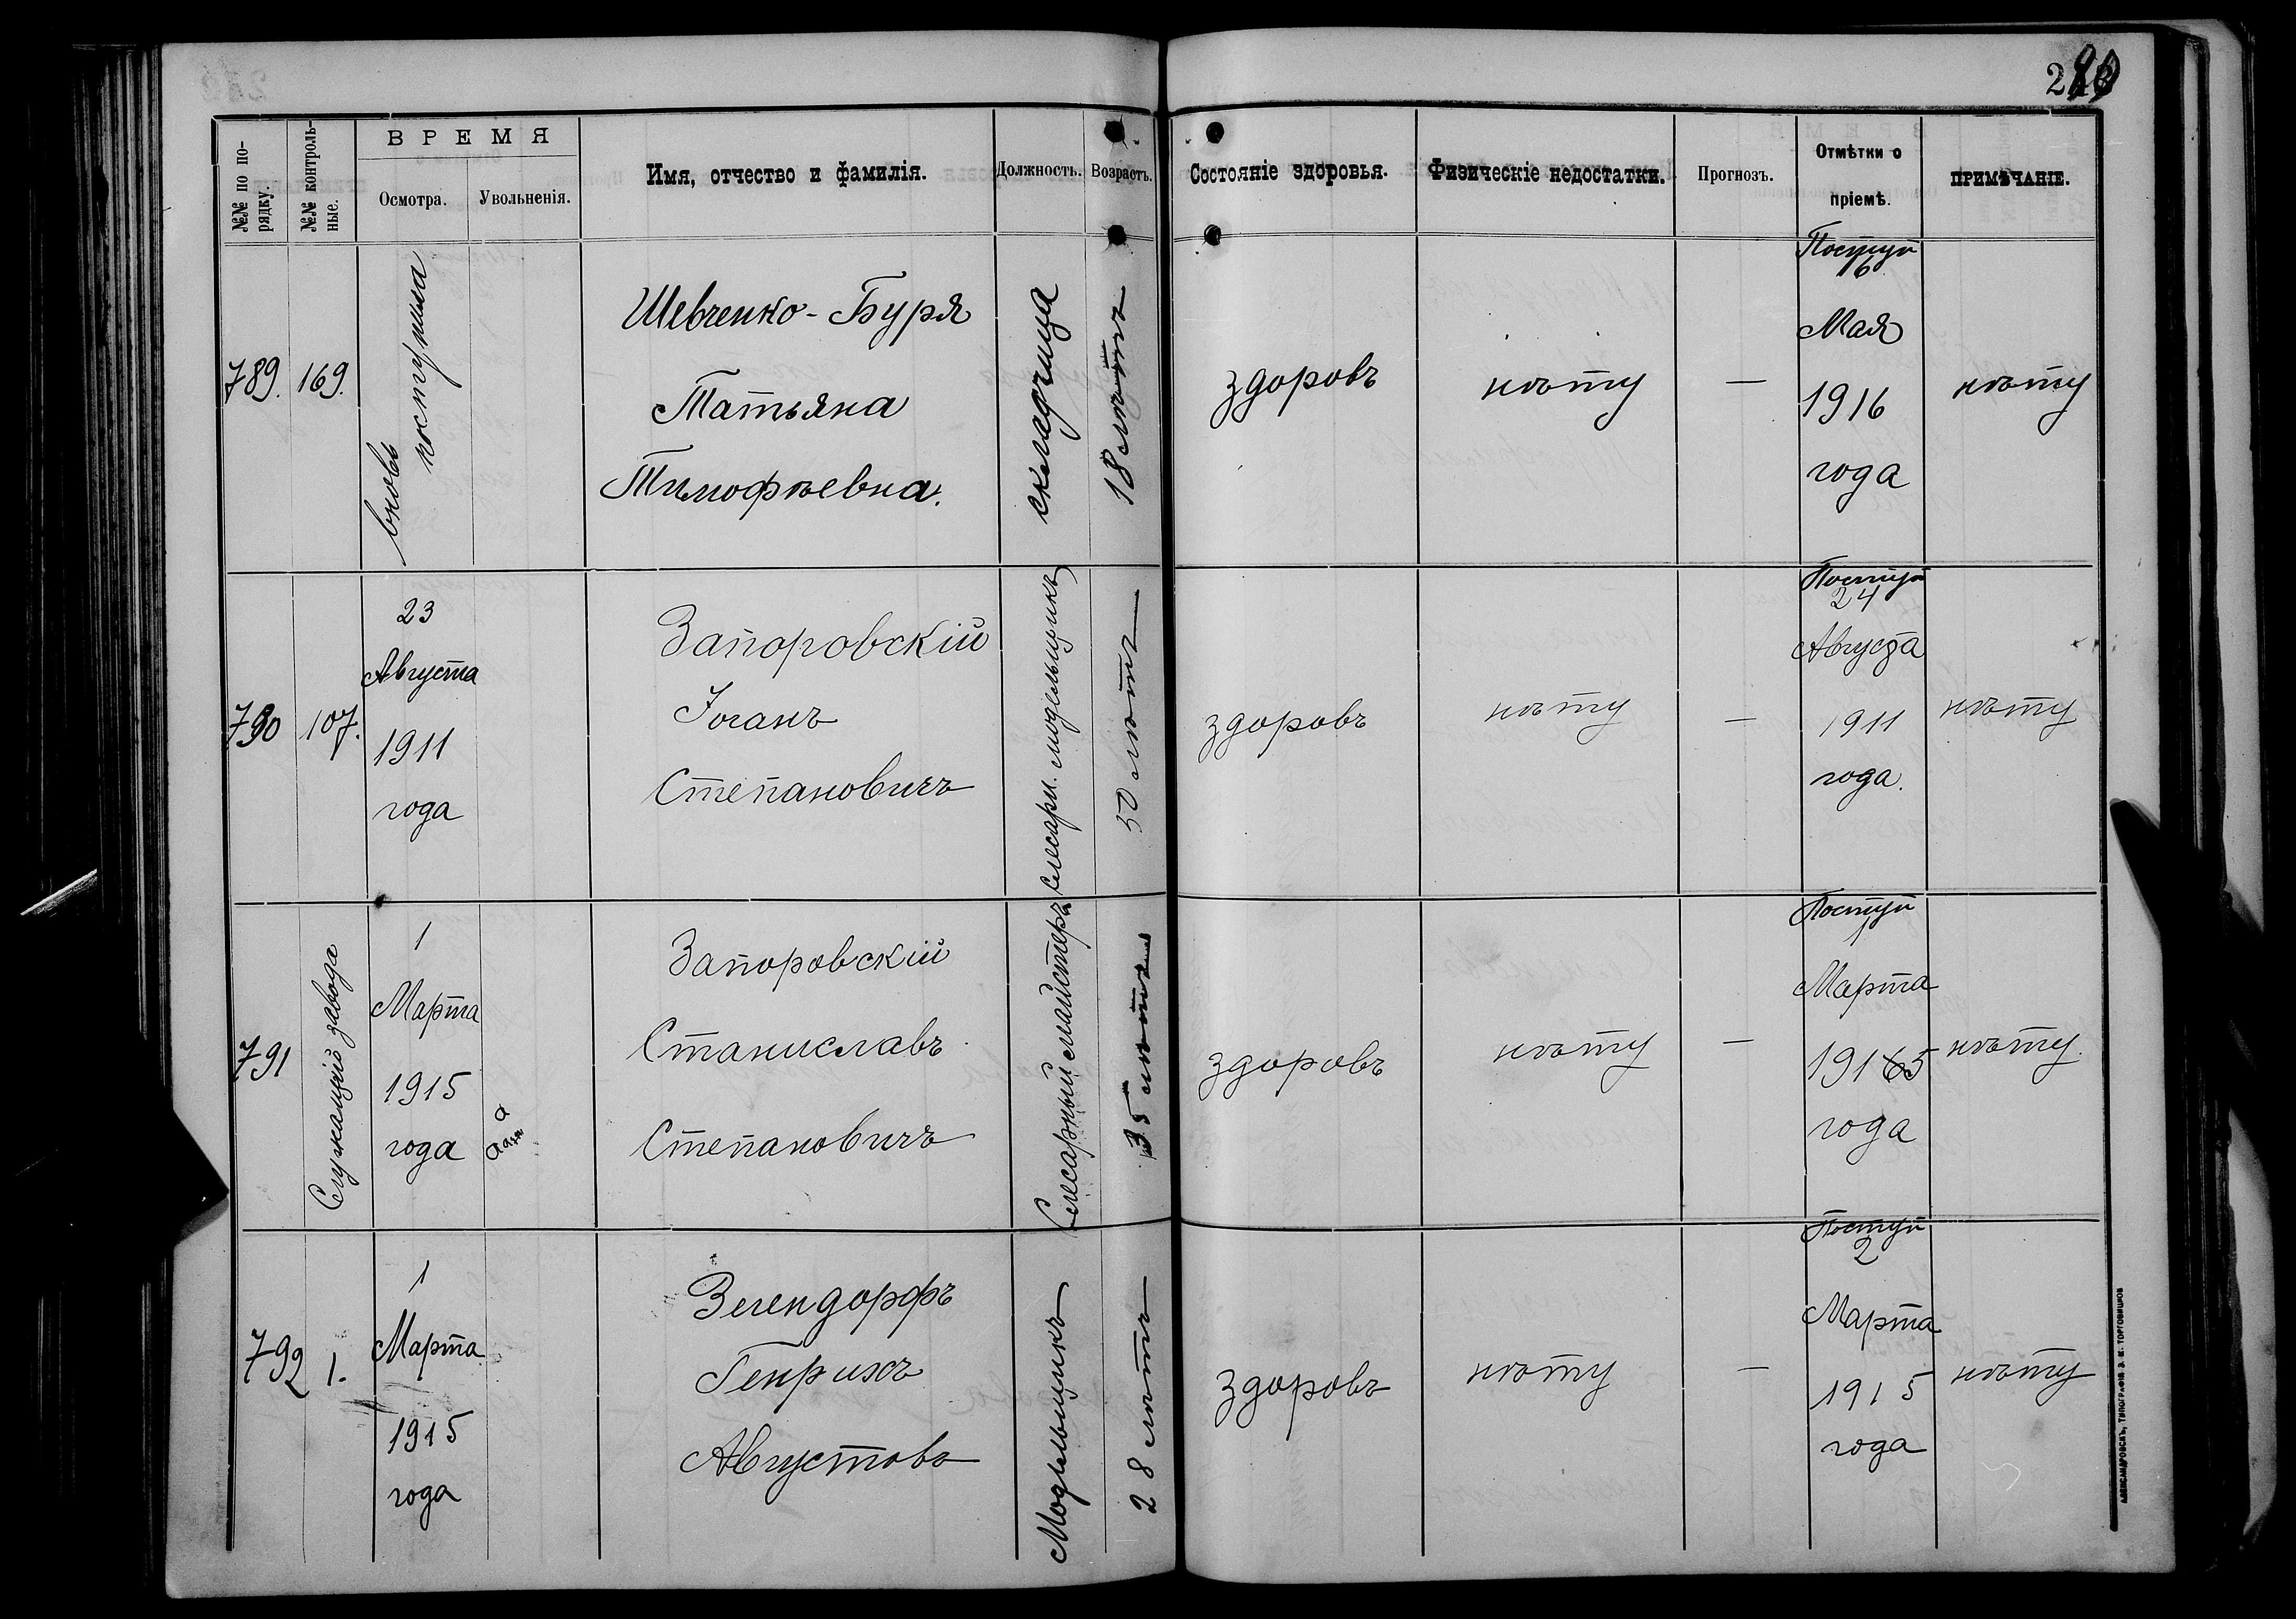 ВРЕМЯ
№№ по по-
рядку.
№№ контроль-
ные.
Осмотра.
Увольненія.
Имя, отчество и фамилія.
Должность.
Возрастъ.
Состояніе здоровья.
Физическіе недостатки.
Прогнозъ.
Отмѣтки о
пріемѣ.
ПРИМѢЧАНІЕ.
789.
169.
вновь
поступила
Шевченко-Буря
Татьяна
Тимофѣевна.
складчица
18 лѣтъ
здоровъ
нѣту
—
Поступ
6
Мая
1916
года
нѣту
790
107.
23
Августа
1911
года
Запоровскій
Іоганъ
Степановичъ
Слесарн. модельщикъ
50 лѣтъ
здоровъ
нѣту
—
Поступ
24
Августа
1911
года.
нѣту
791
Служащій завода
1
Марта
1915
года
Запоровскій
Станиславъ
Степановичъ
Слесарный майстеръ
35 лѣтъ
здоровъ
нѣту
—
Поступ
1
Марта
1915
года
нѣту.
792
1.
1
Марта
1915
года
Зегендорфъ
Генрихъ
Августовъ
Модельщикъ
28 лѣтъ
здоровъ
нѣту
—
Поступ
2
Марта
1915
года
нѣту
АЛЕКСАНДРОВСКЪ, ТИПОГРАФІЯ Э. И. ТОРГОВИЦКОВ